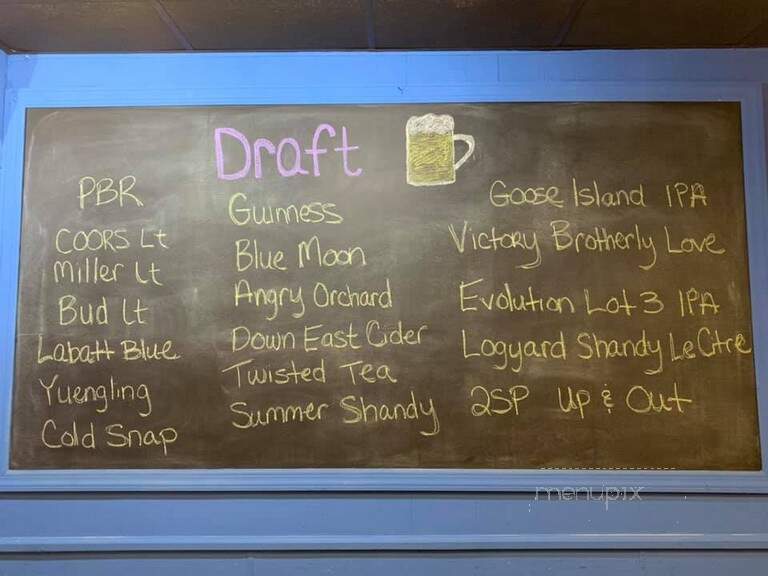 Draft
PBR
COORS Lt
Miller Lt
Bud Lt
Labatt Blue
Yuengling
Cold Snap
Guinness
Blue Moon
Angry Orchard
Down East Cider
Twisted Tea
Summer Shandy
Goose Island IPA
Victory Brotherly Love
Evolution Lot 3 IPA
Logyard Shandy Le Citre
2SP Up & Out
menupix